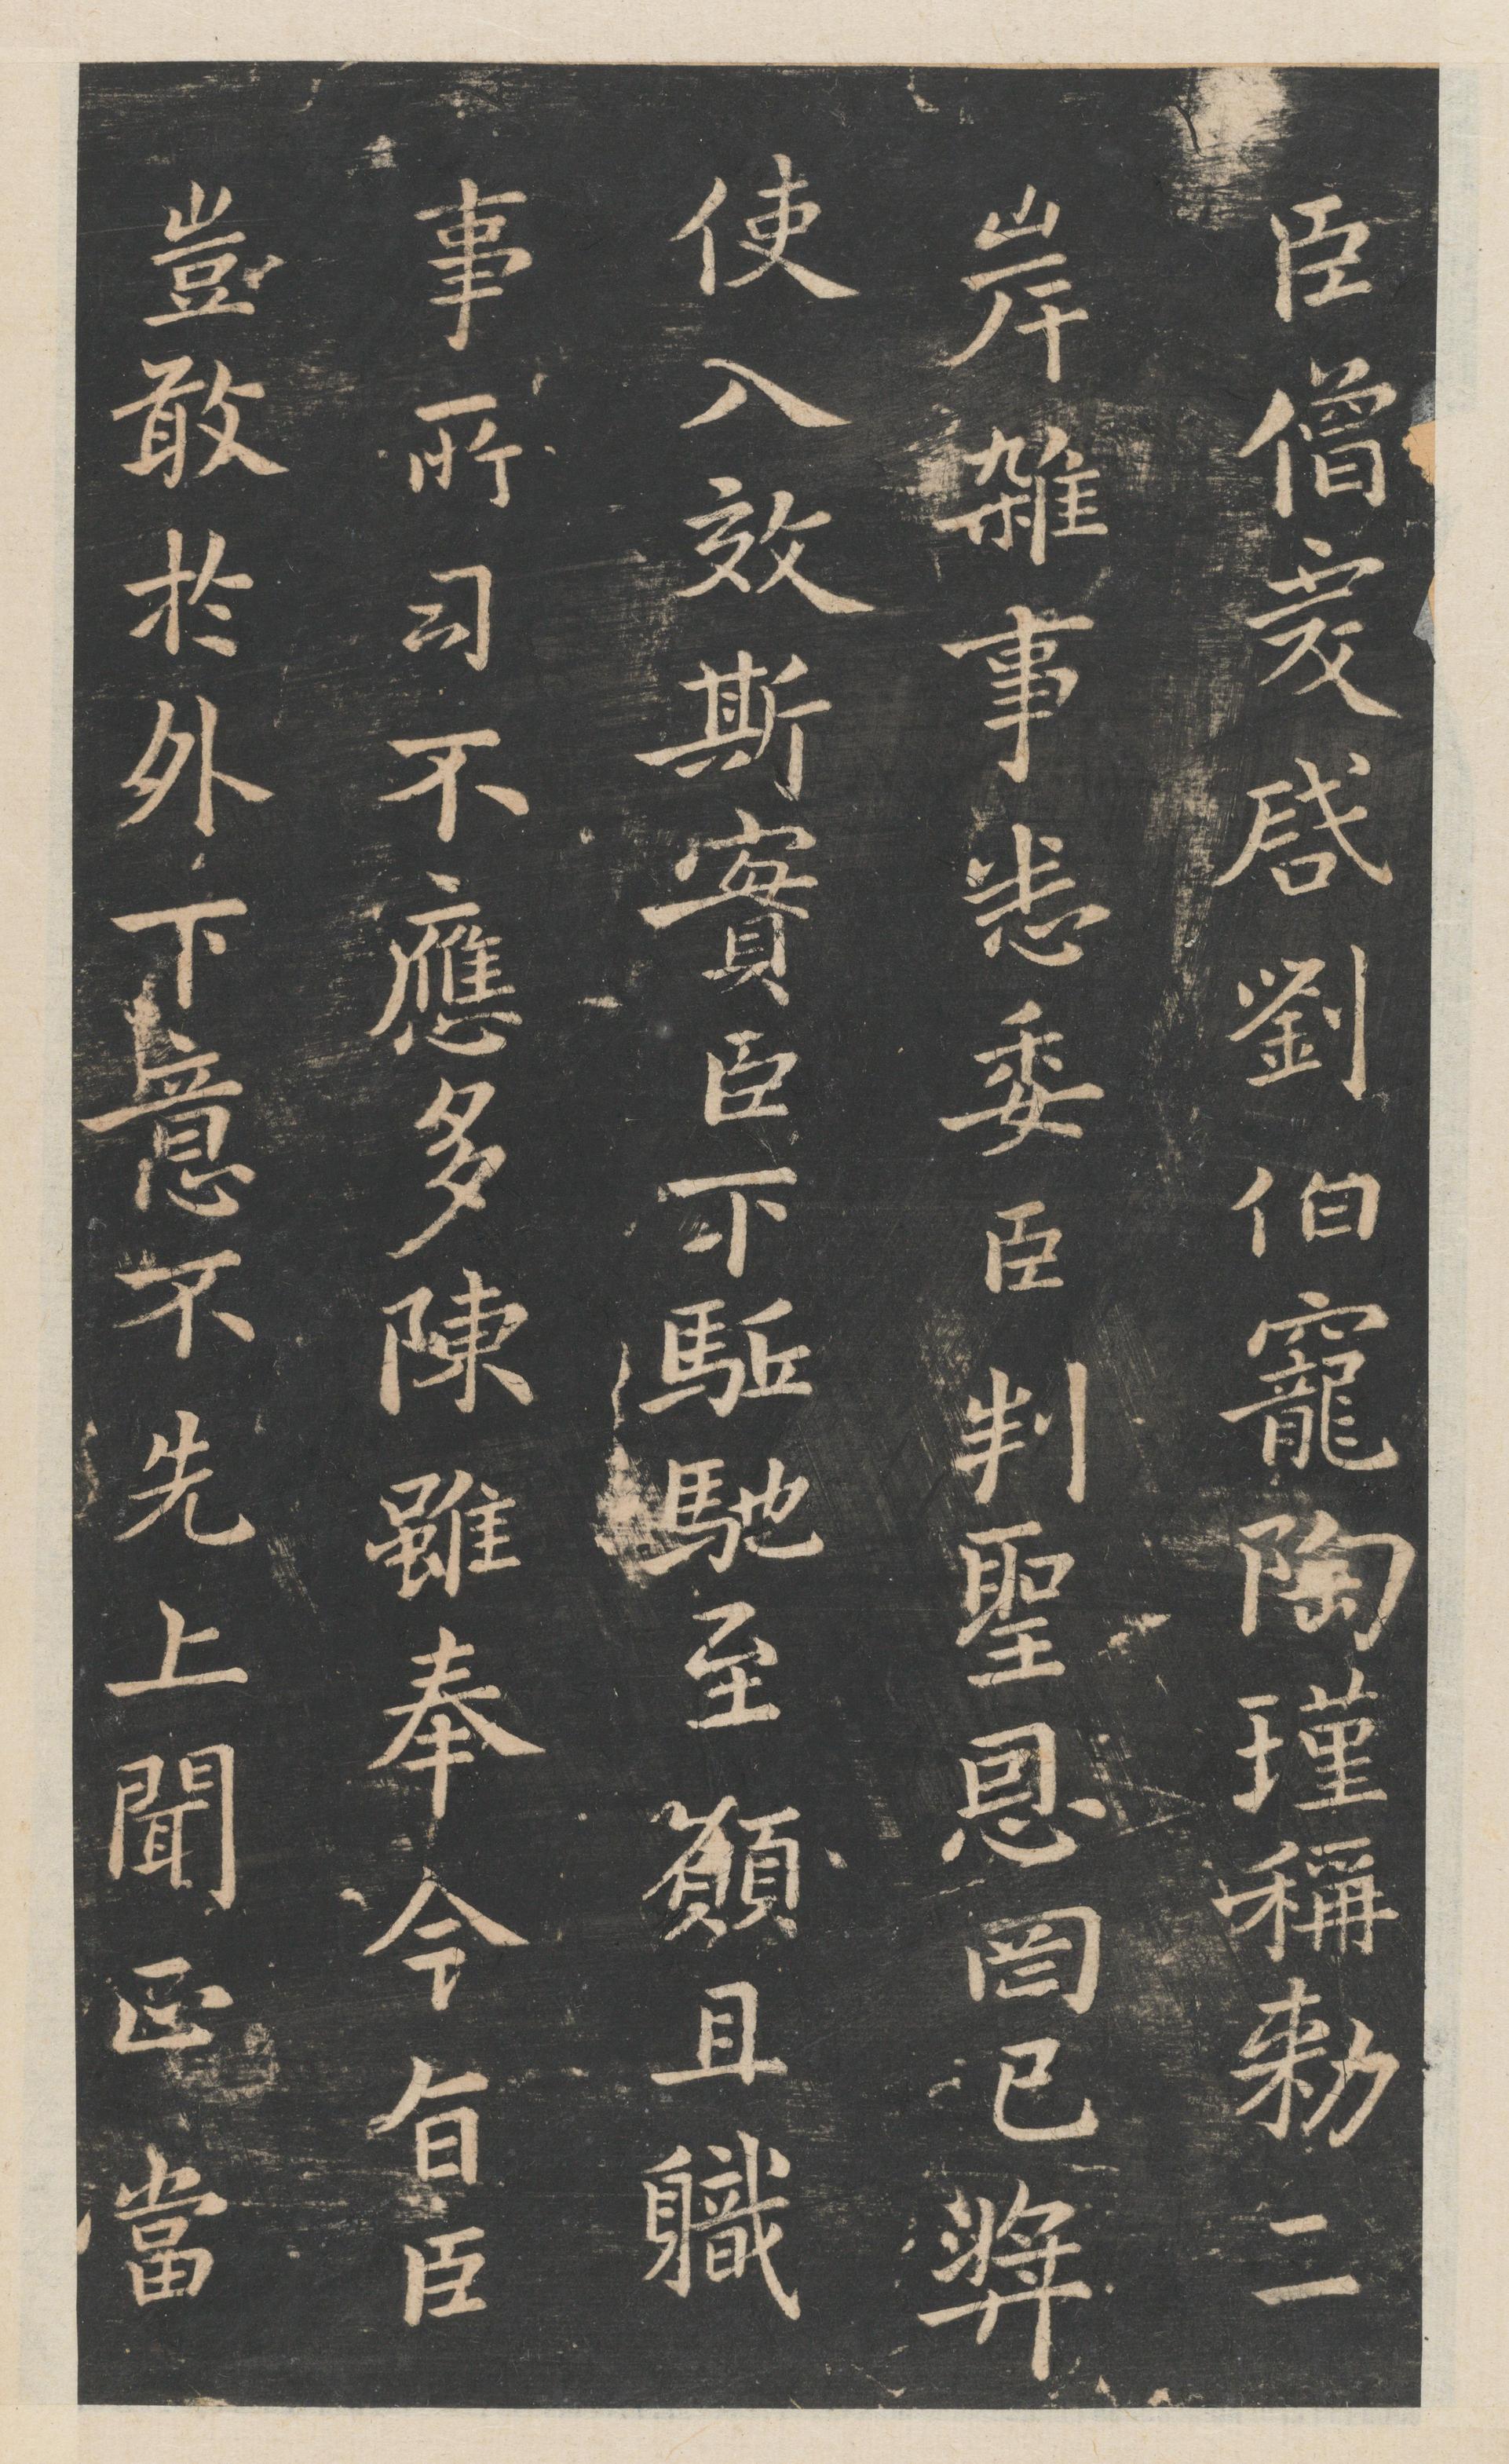 臣僧虔啓劉伯寵陶瑾稱勑二
岸雜事悉委臣判聖恩罔已奬
使入效斯實臣下駈馳至願且職
事所司不應多陳雖奉令旨臣
豈敢於外下意不先上聞正當